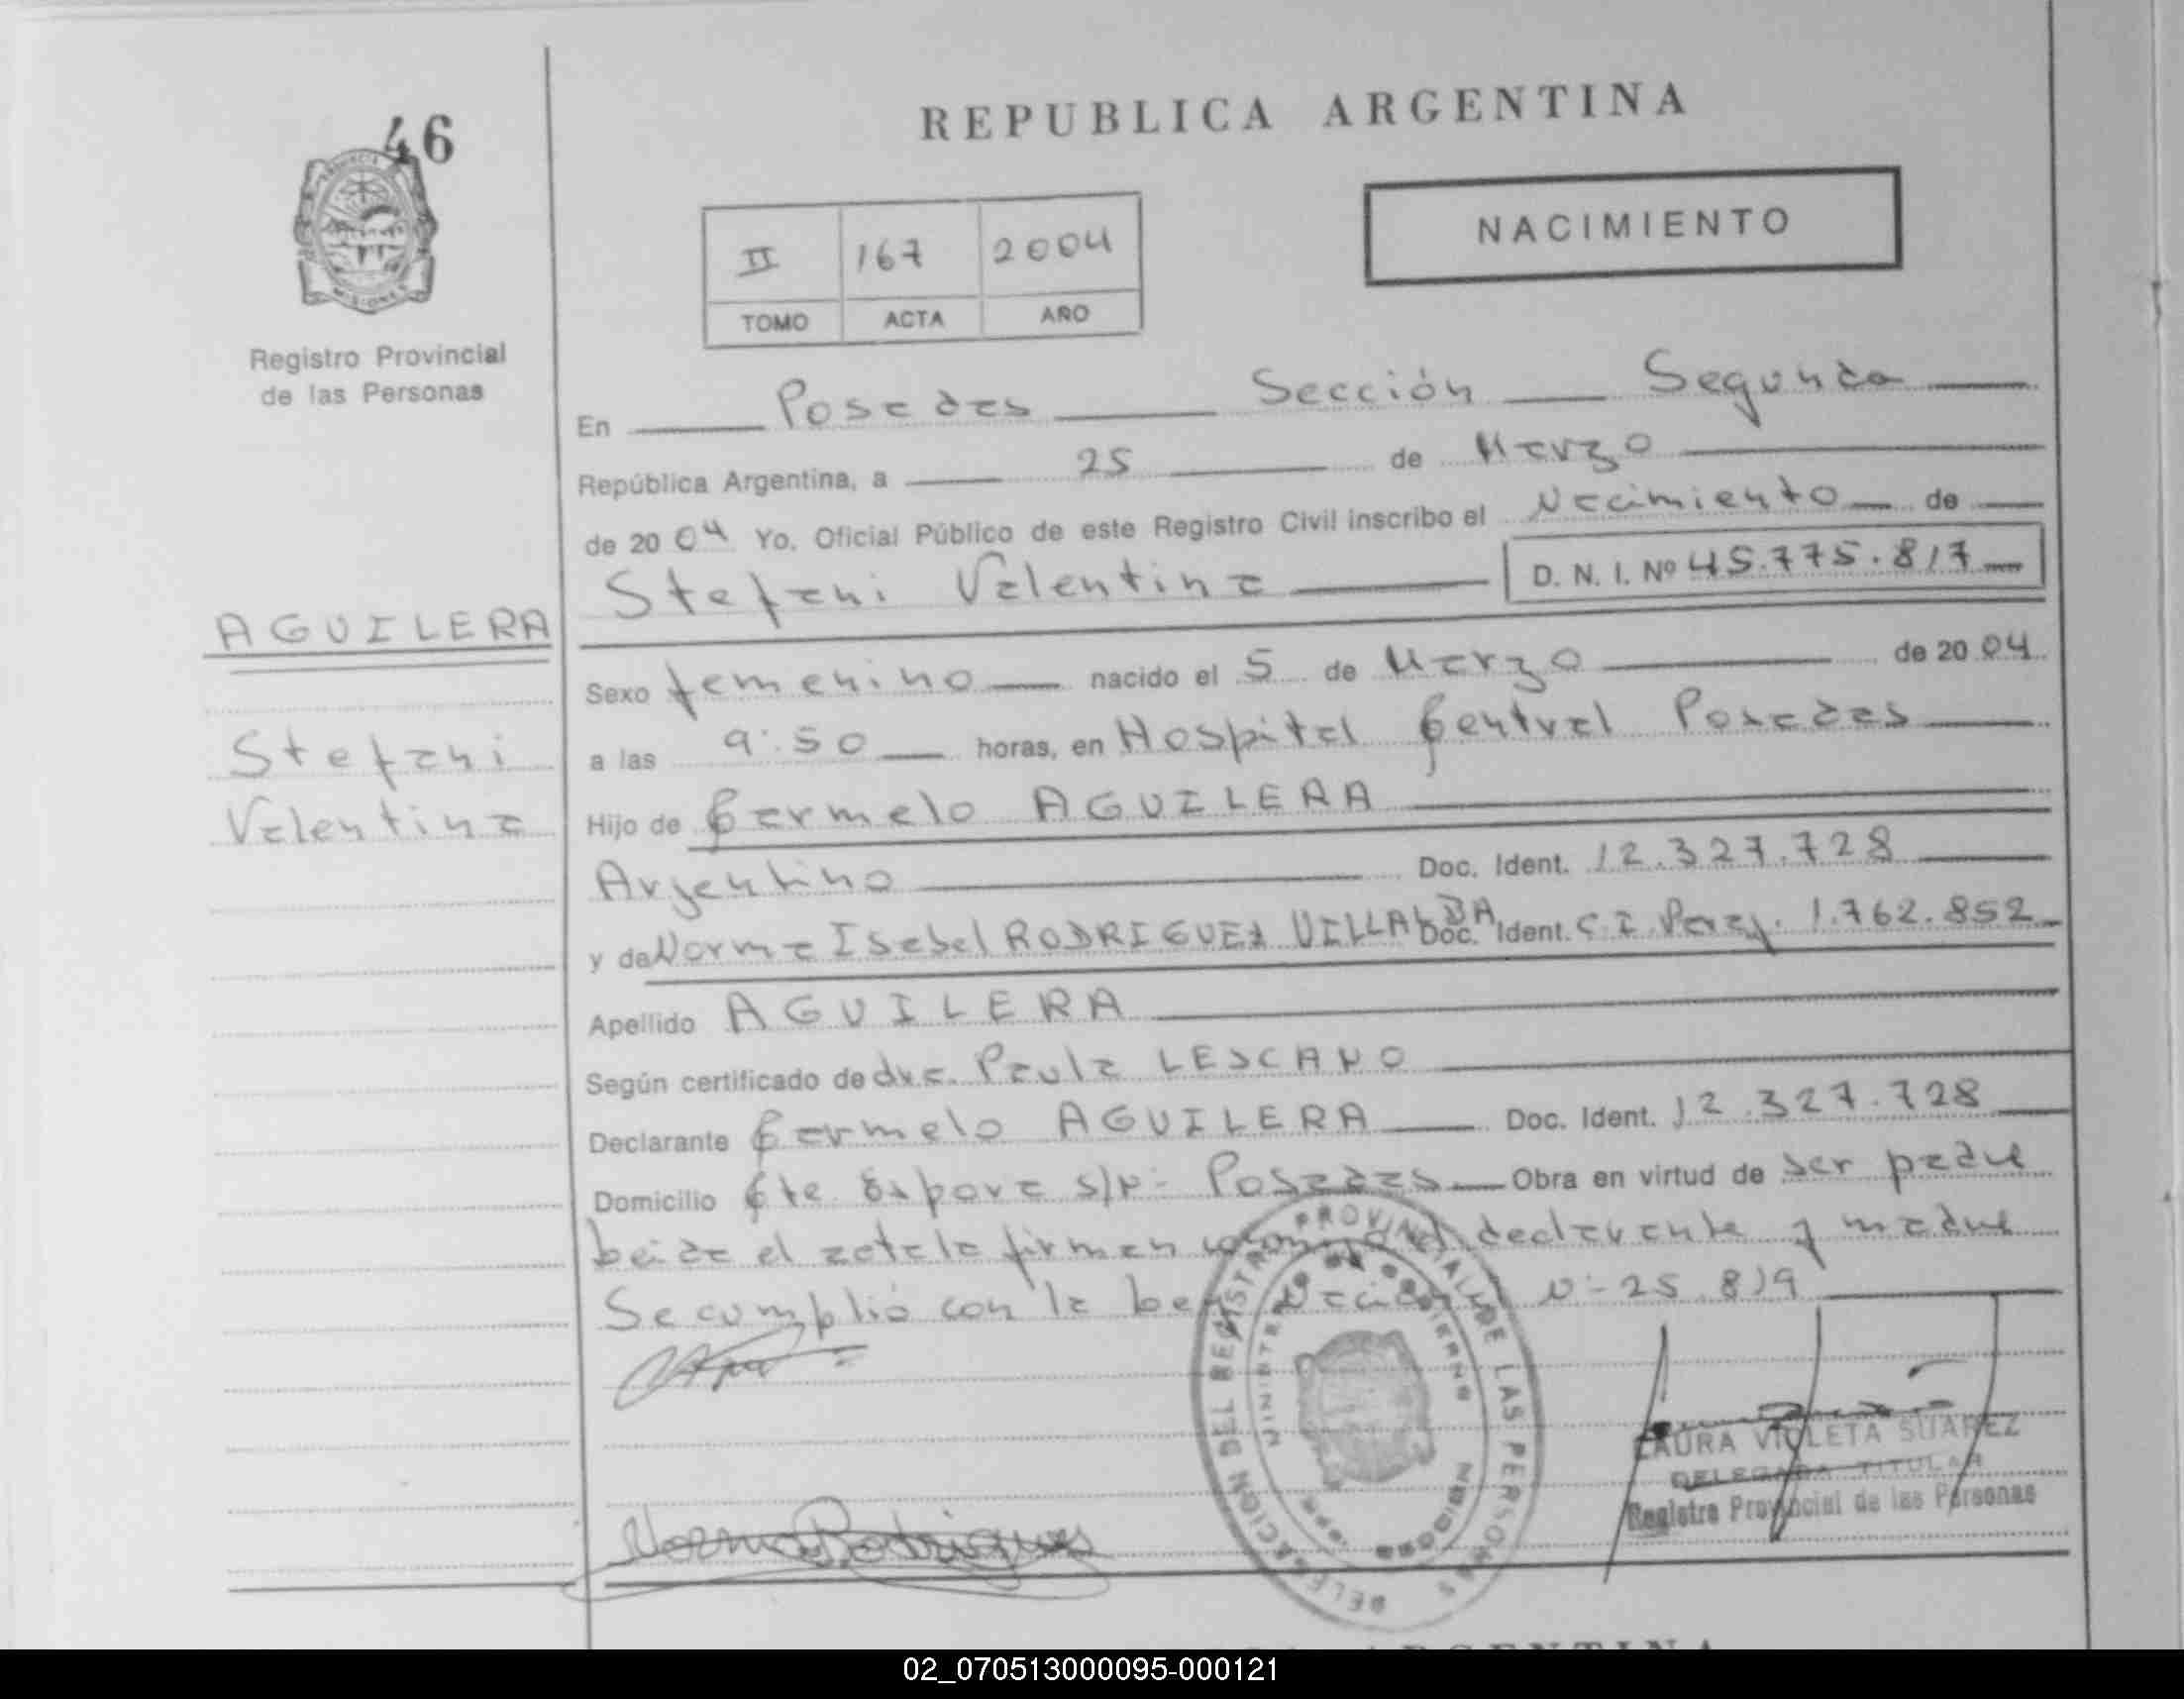 46
PROVINCIA
MISIONES
Registro Provincial
de las Personas
REPUBLICA ARGENTINA
NACIMIENTO
II 167 2004
TOMO ACTA AÑO
En Posadas Sección Segunda
República Argentina, a 25 de Marzo
de 2004 Yo, Oficial Público de este Registro Civil inscribo el Nacimiento de
Stefani Valentina D. N. I. Nº 45.775.817
AGUILERA
Stefani
Valentina
Sexo femenino nacido el 5 de Marzo de 2004
a las 9:50 horas, en Hospital Central Posadas
Hijo de Carmelo AGUILERA
Argentino Doc. Ident. 12.327.728
y de Norma Isabel RODRIGUEZ VILLALBA Doc. Ident. C.I. Paray. 1.762.852
Apellido AGUILERA
Según certificado de dra. Paula LESCANO
Declarante Carmelo AGUILERA Doc. Ident. 12.327.728
Domicilio Cte. Espora s/n- Posadas Obra en virtud de ser padre
Leida el acta la firman declarante y madre
Se cumplió con la Ley N- 25.819
Norma Rodrigues
DELEGACION DEL REGISTRO PROVINCIAL DE LAS PERSONAS
LAURA VIOLETA SUAREZ
DELEGADA TITULAR
Registro Provincial de las Personas
ARGENTINA
02_070513000095-000121